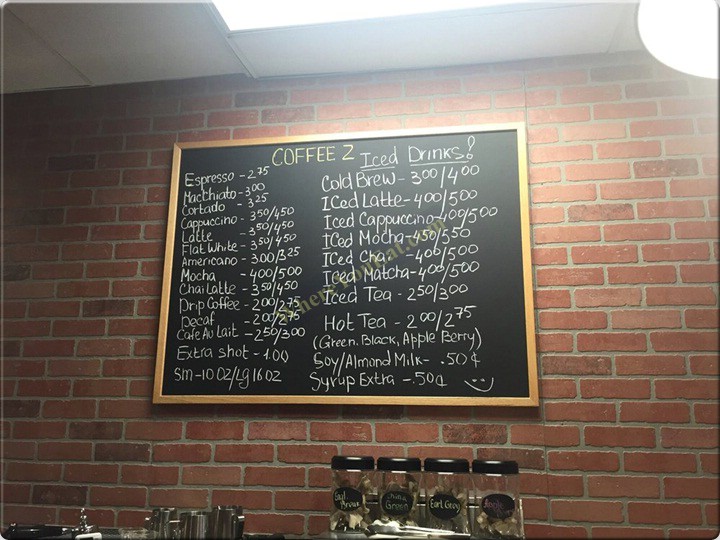 COFFEE Z
Espresso - 2.75
Macchiato - 3.00
Cortado - 3.25
Cappuccino - 3.50/4.50
Latte - 3.50/4.50
Flat White - 3.50/4.50
Americano - 3.00/3.25
Mocha - 4.00/5.00
Chai Latte - 3.50/4.50
Drip Coffee - 2.00/2.75
Decaf - 2.00/2.75
Cafe Au Lait - 2.50/3.00
Extra shot - 1.00
Sm - 10 OZ/Lg 16 OZ
Iced Drinks!
Cold Brew - 3.00/4.00
ICed Latte - 4.00/5.00
Iced Cappuccino - 4.00/5.00
ICed Mocha - 4.50/5.50
Iced Chai - 4.00/5.00
Iced Matcha - 4.00/5.00
Iced Tea - 2.50/3.00
Hot Tea - 2.00/2.75
(Green, Black, Apple Berry)
Soy/Almond Milk - .50¢
Syrup Extra - .50¢
Green
Earl Grey